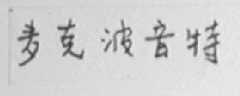 麦克波音特